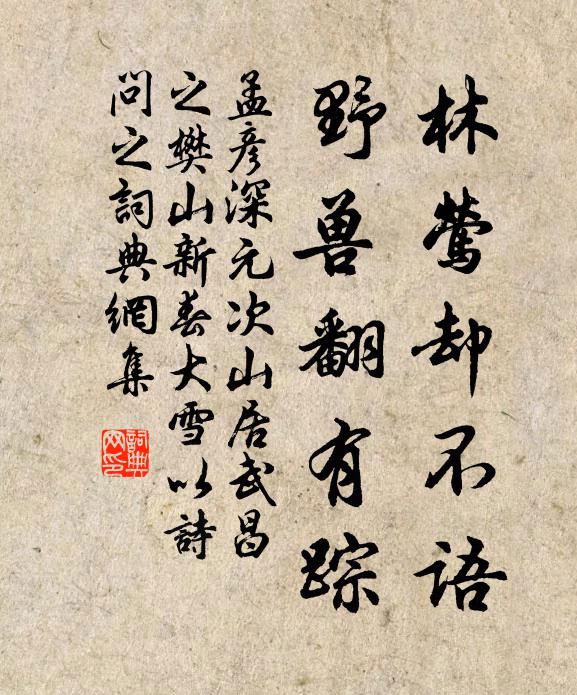 林莺却不语
野兽翻有踪
孟彦深元次山居武昌
之樊山新春大雪以詩
問之詞典網集
詞典
网印